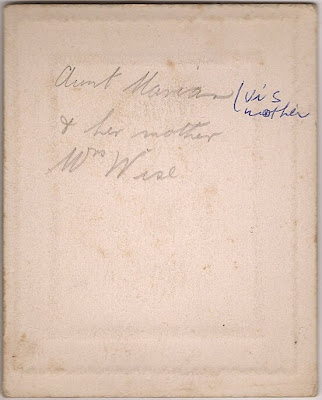 Aunt Marian (Vi's
mother
& her mother
Mrs Wise